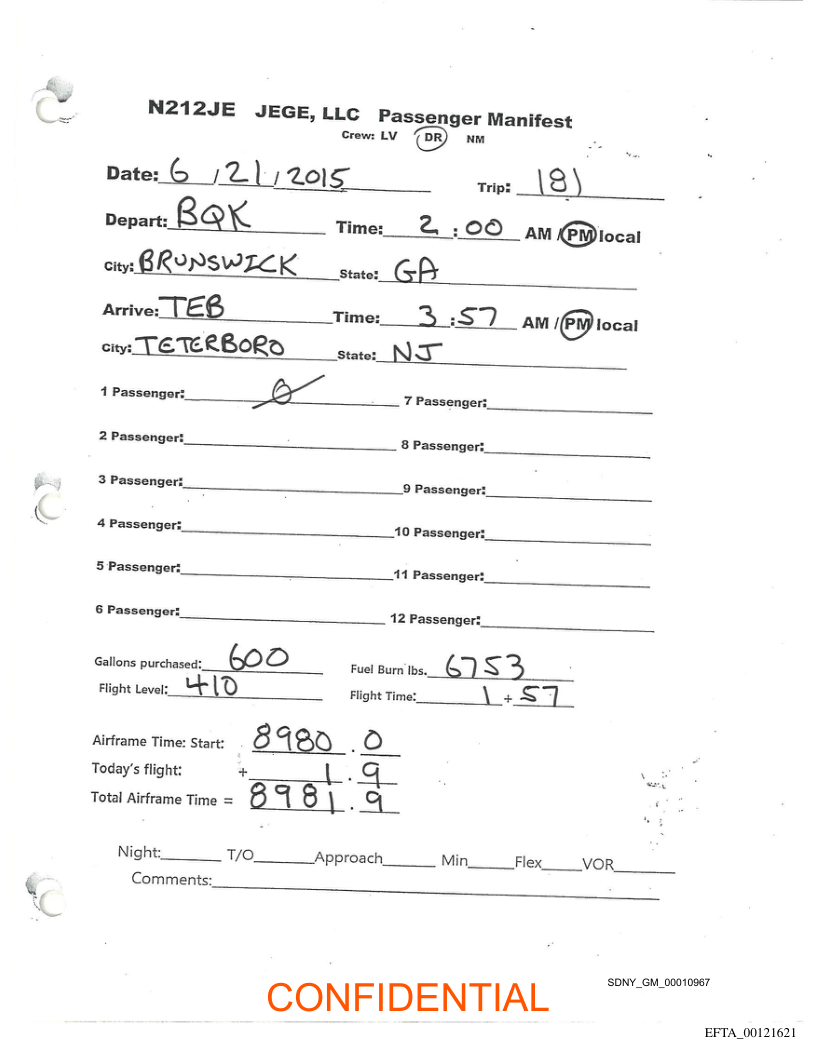 N212JE JEGE, LLC Passenger Manifest
Crew: LV DR NM
Date: 6 / 21 / 2015 Trip: 181
Depart: BQK Time: 2 : 00 AM / PM local
City: BRUNSWICK State: GA
Arrive: TEB Time: 3 : 57 AM / PM local
City: TETERBORO State: NJ
1 Passenger: 0 7 Passenger:
2 Passenger: 8 Passenger:
3 Passenger: 9 Passenger:
4 Passenger: 10 Passenger:
5 Passenger: 11 Passenger:
6 Passenger: 12 Passenger:
Gallons purchased: 600 Fuel Burn lbs. 6753
Flight Level: 410 Flight Time: 1 + 57
Airframe Time: Start: 8980 . 0
Today's flight: + 1 . 9
Total Airframe Time = 8981 . 9
Night: T/O Approach Min Flex VOR
Comments:
SDNY_GM_00010967
CONFIDENTIAL
EFTA_00121621